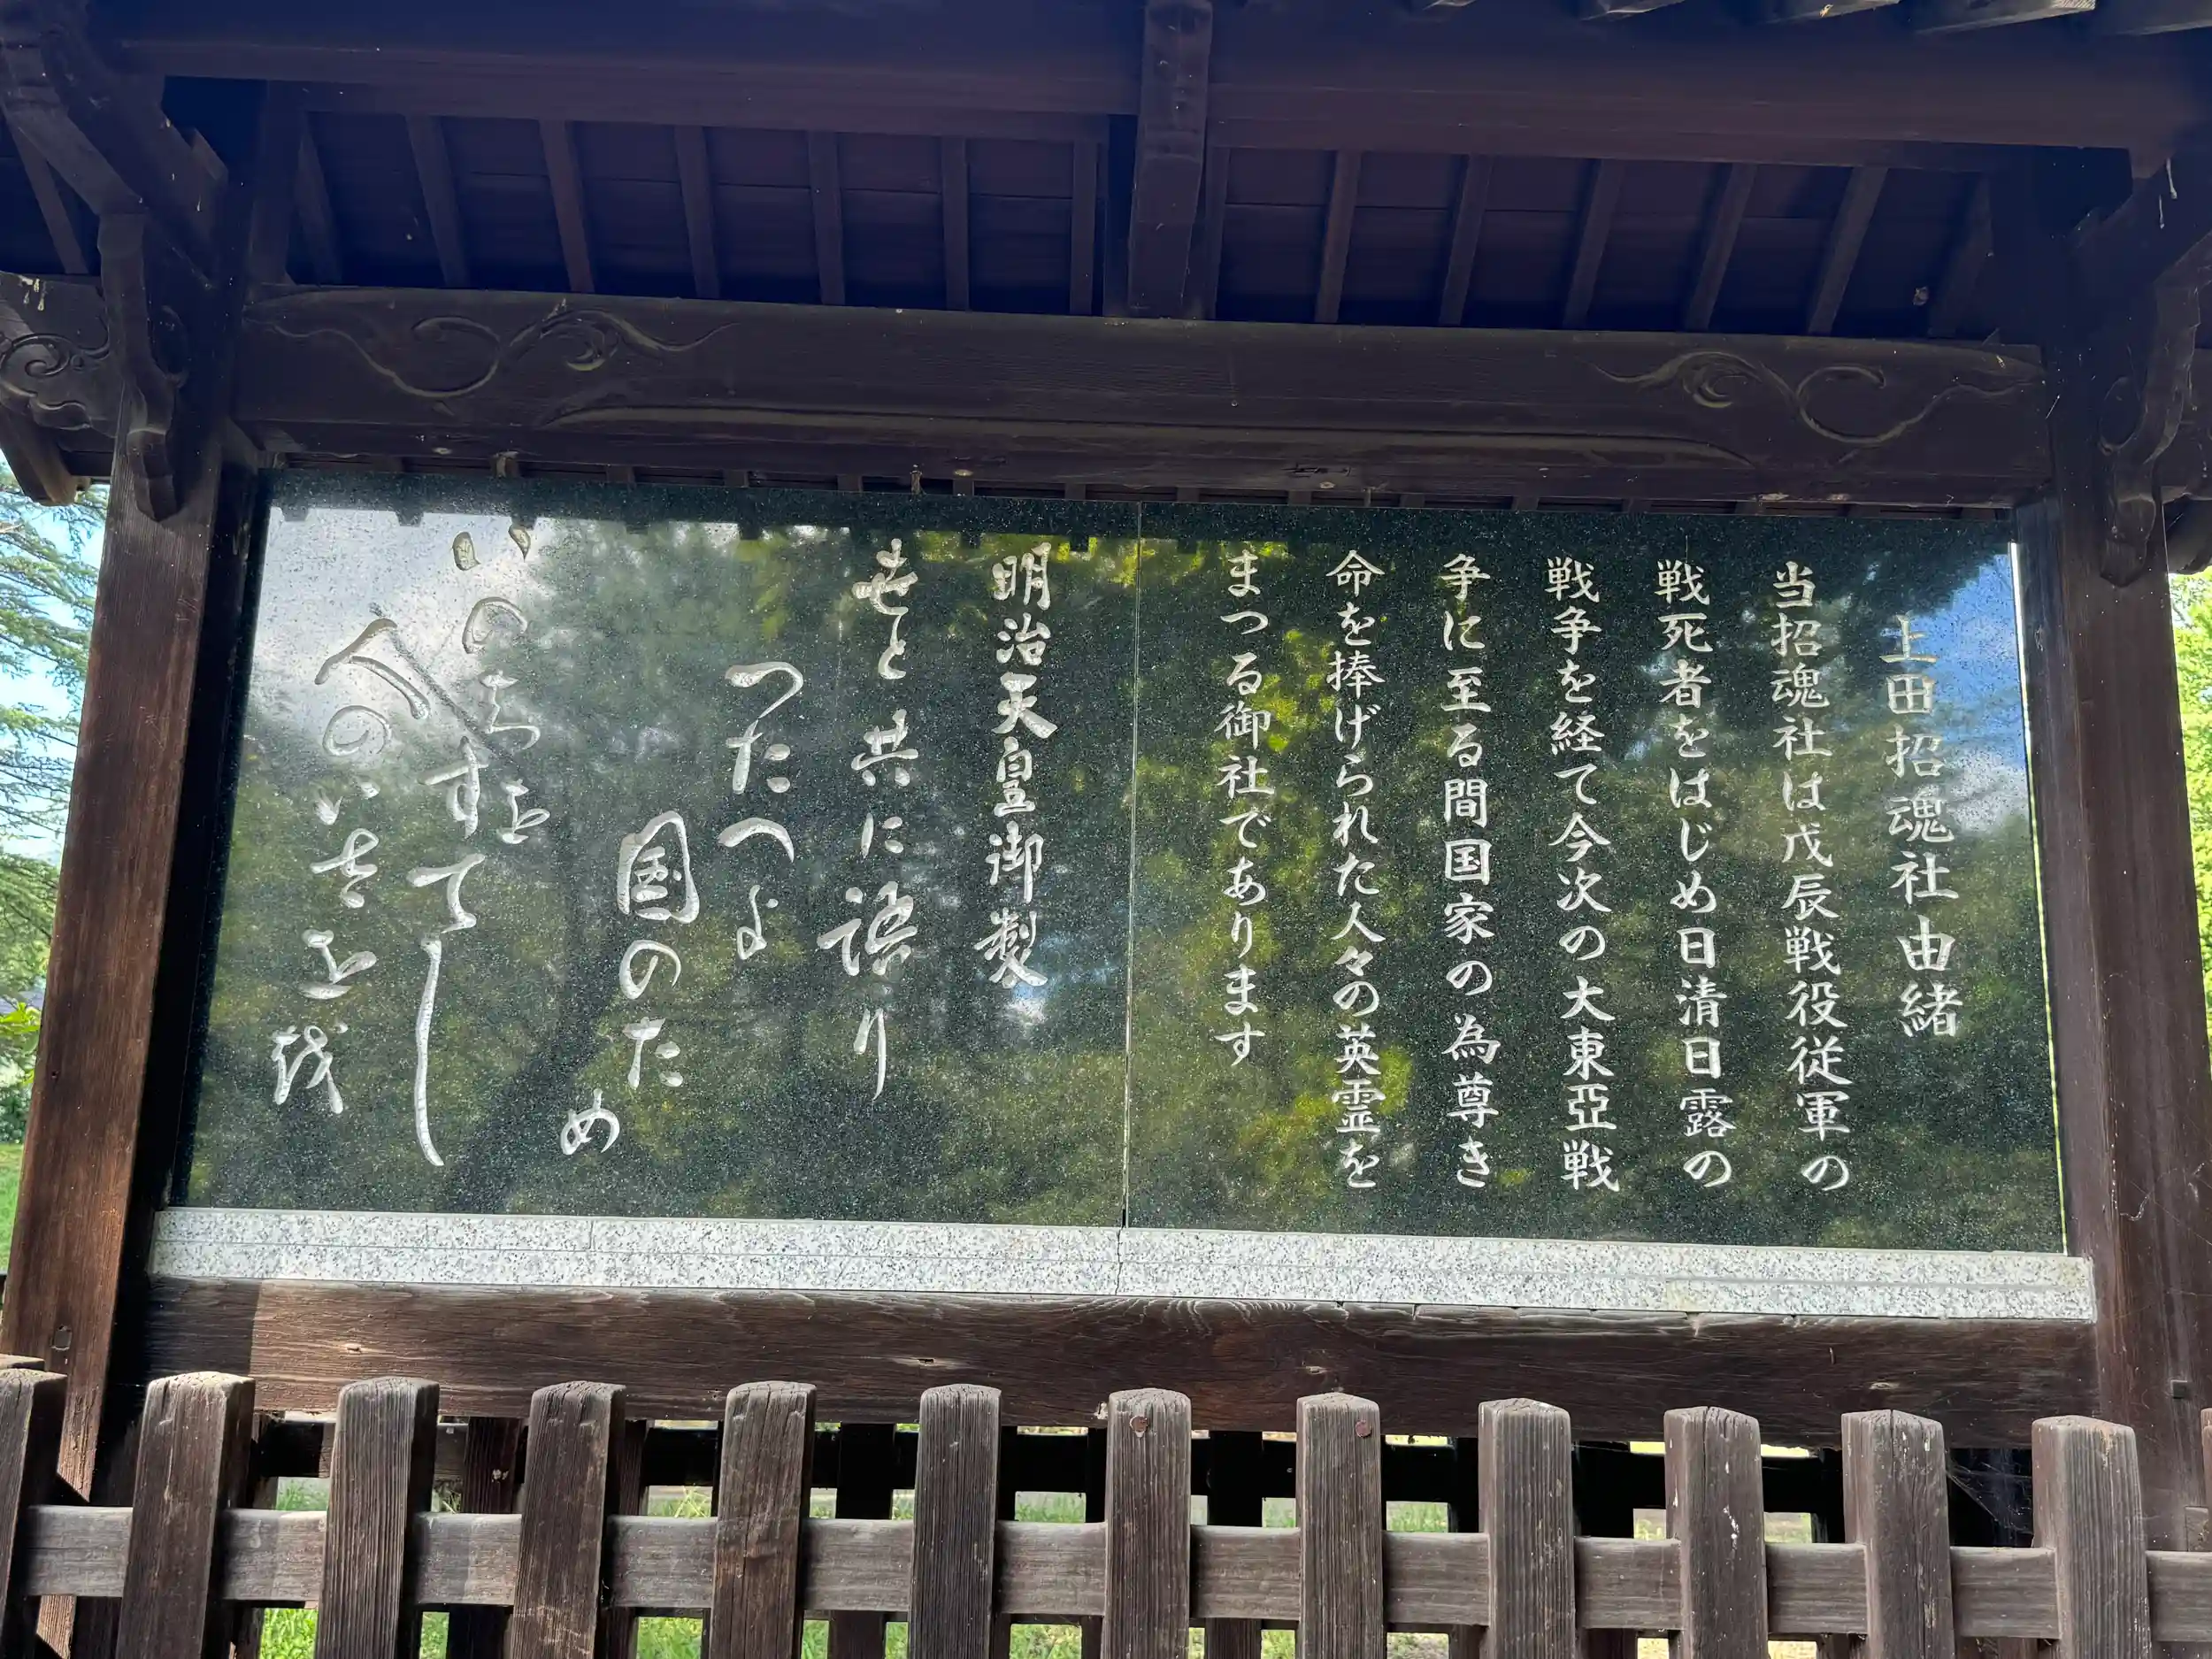 上田招魂社由緒
当招魂社は戊辰戦役従軍の
戦死者をはじめ日清日露の
戦争を経て今次の大東亞戦
争に至る間国家の為尊き
命を捧げられた人々の英霊を
まつる御社であります
明治天皇御製
世と共に語り
つたへよ
国のため
いのちを
すてし
人のいさを越